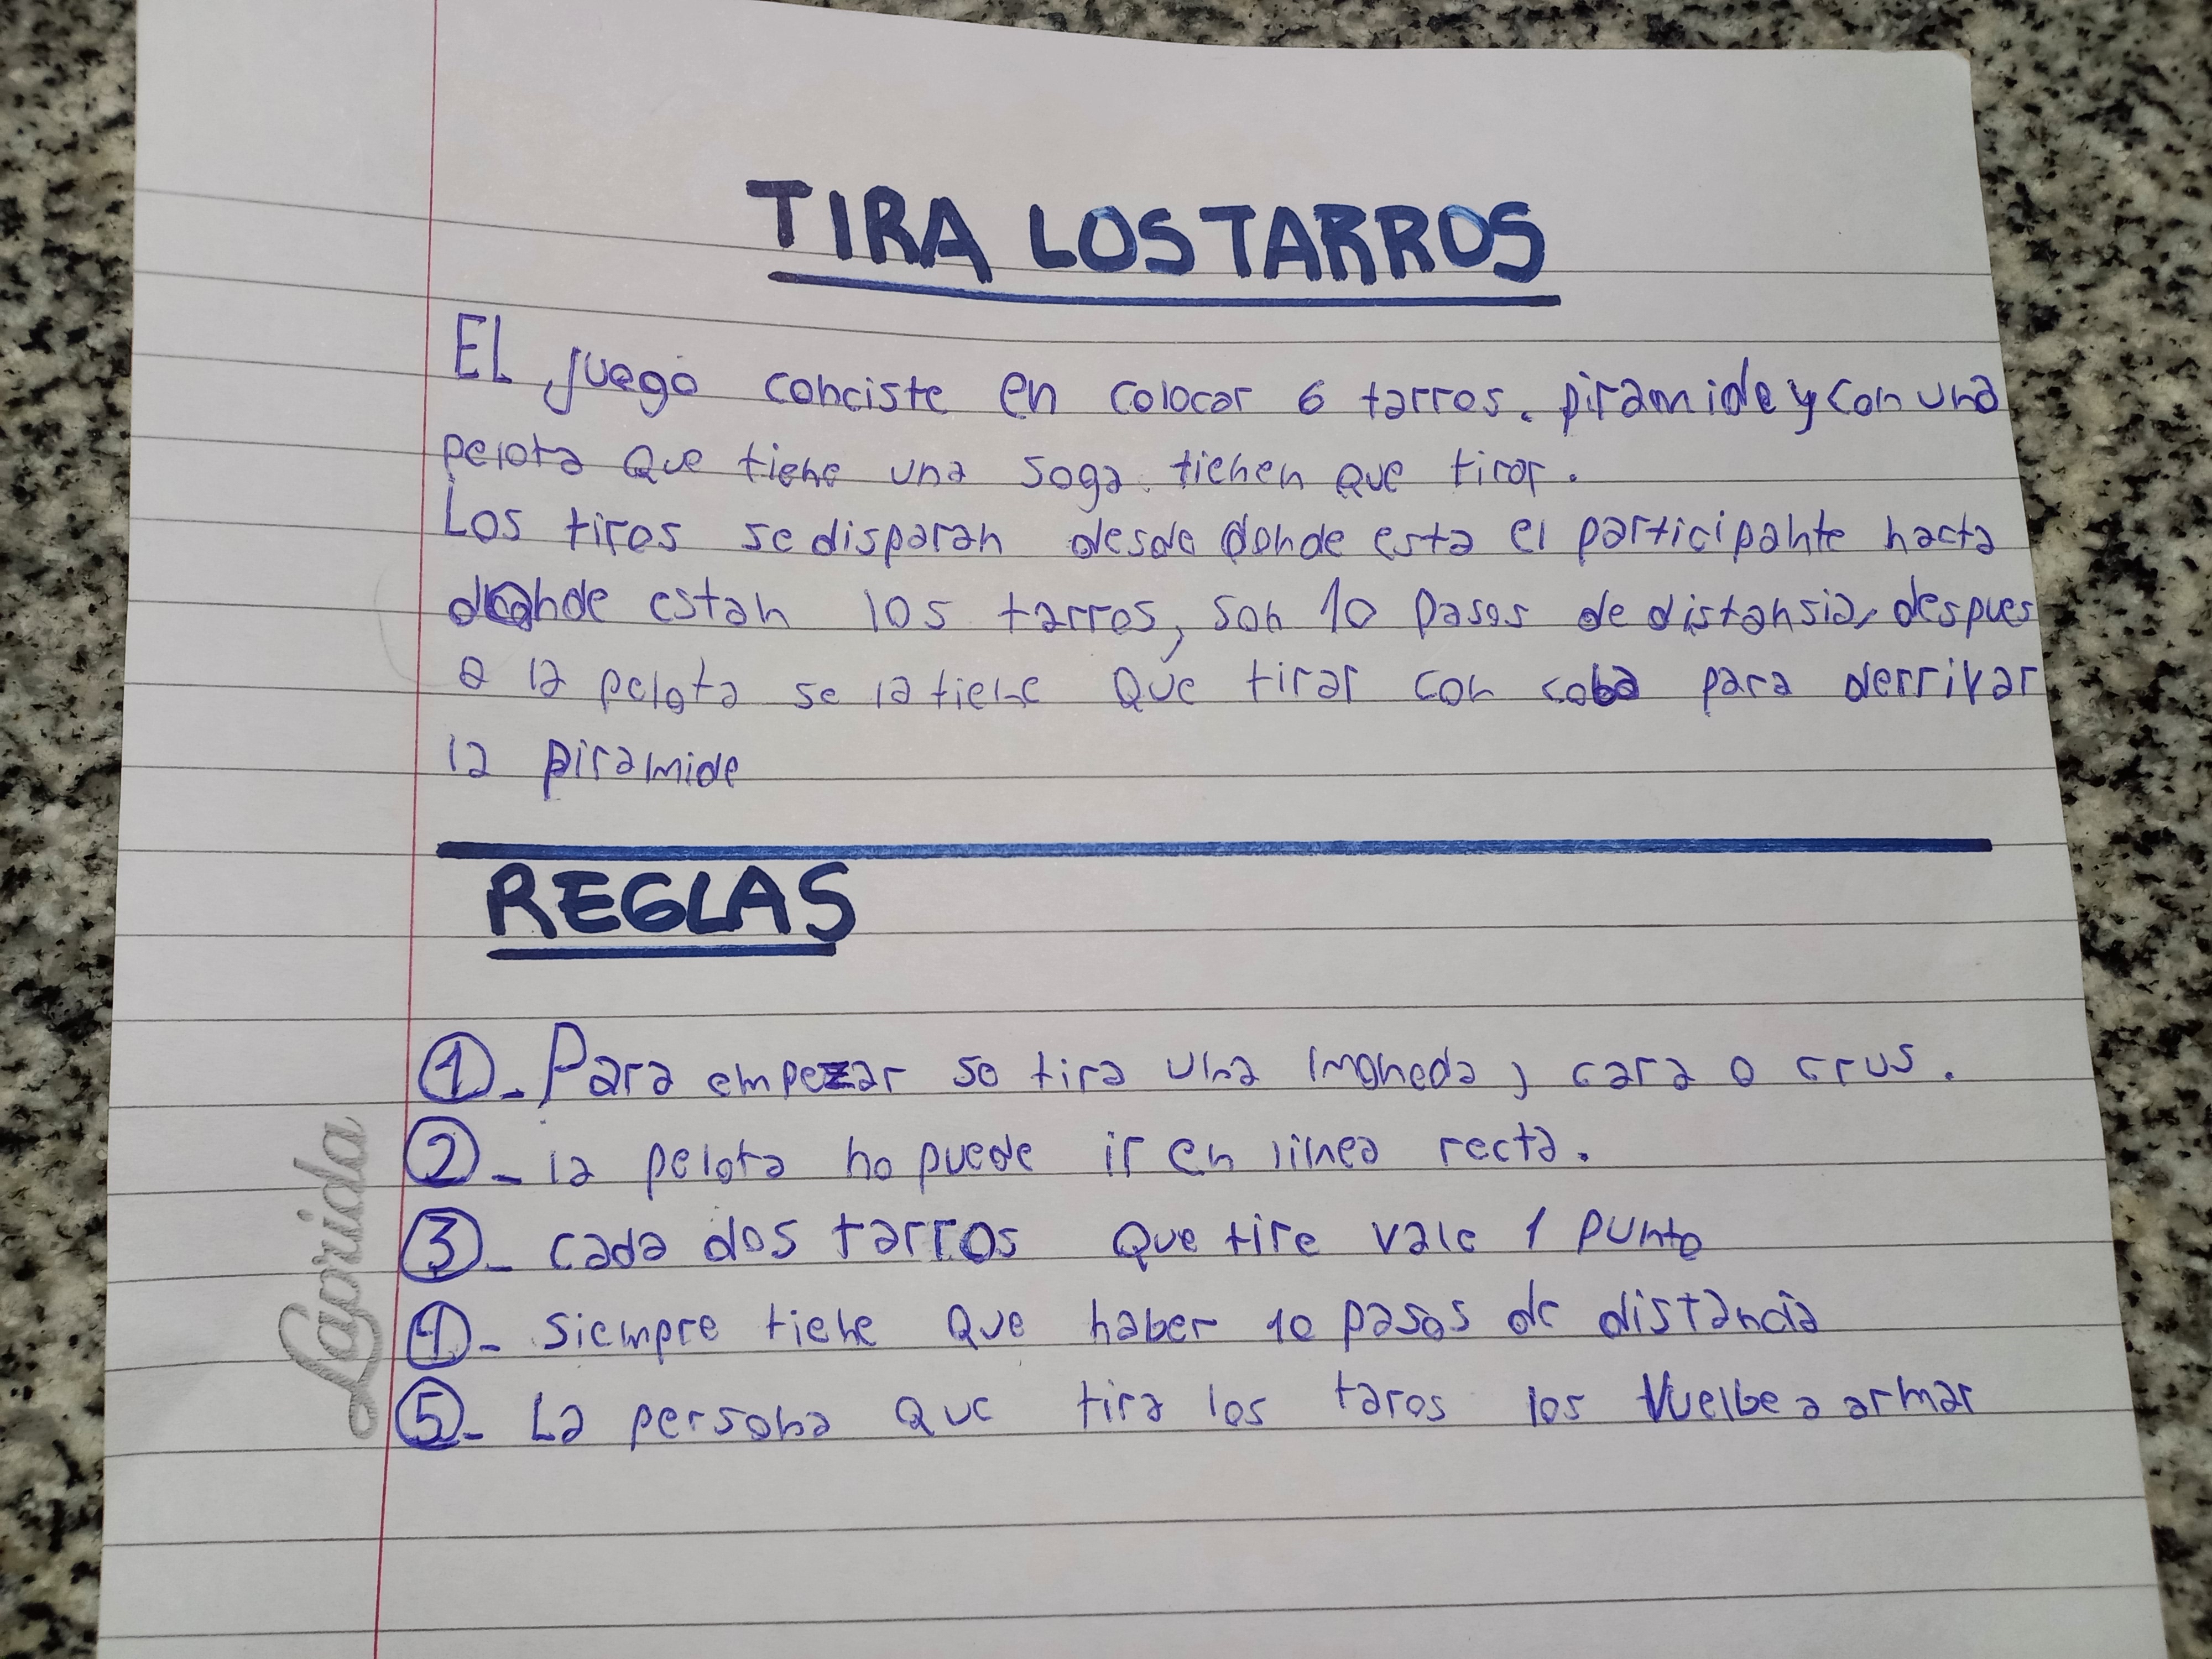 TIRA LOS TARROS
El juego conciste en colocar 6 tarros. piramide y con una
pelota que tiene una soga. tienen que tirar.
Los tiros se disparan desde donde esta el participante hacta
donde estan los tarros, son 10 pasos de distansia, despues
a la pelota se la tiene que tirar con coba para derrivar
la piramide
REGLAS
1- Para empezar se tira una moneda, cara o crus.
2- la pelota no puede ir en linea recta.
3- cada dos tarros que tire vale 1 punto
4- siempre tiene que haber 10 pasos de distancia
5- La persona que tira los taros los vuelbe a armar
Laprida